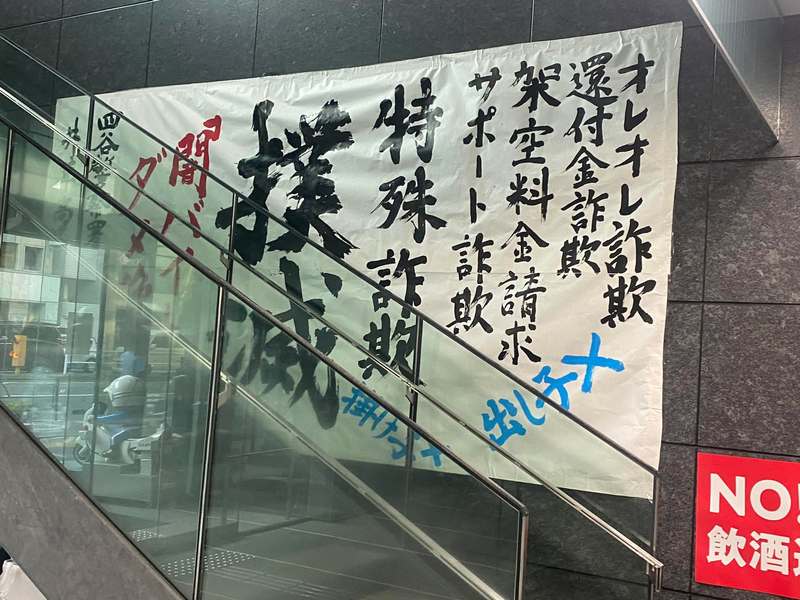 オレオレ詐欺
還付金詐欺
架空料金請求
サポート詐欺
特殊詐欺
撲滅
「闇バイ
ダメ
四谷警察署
出し子×
掛け子×
NO!
飲酒